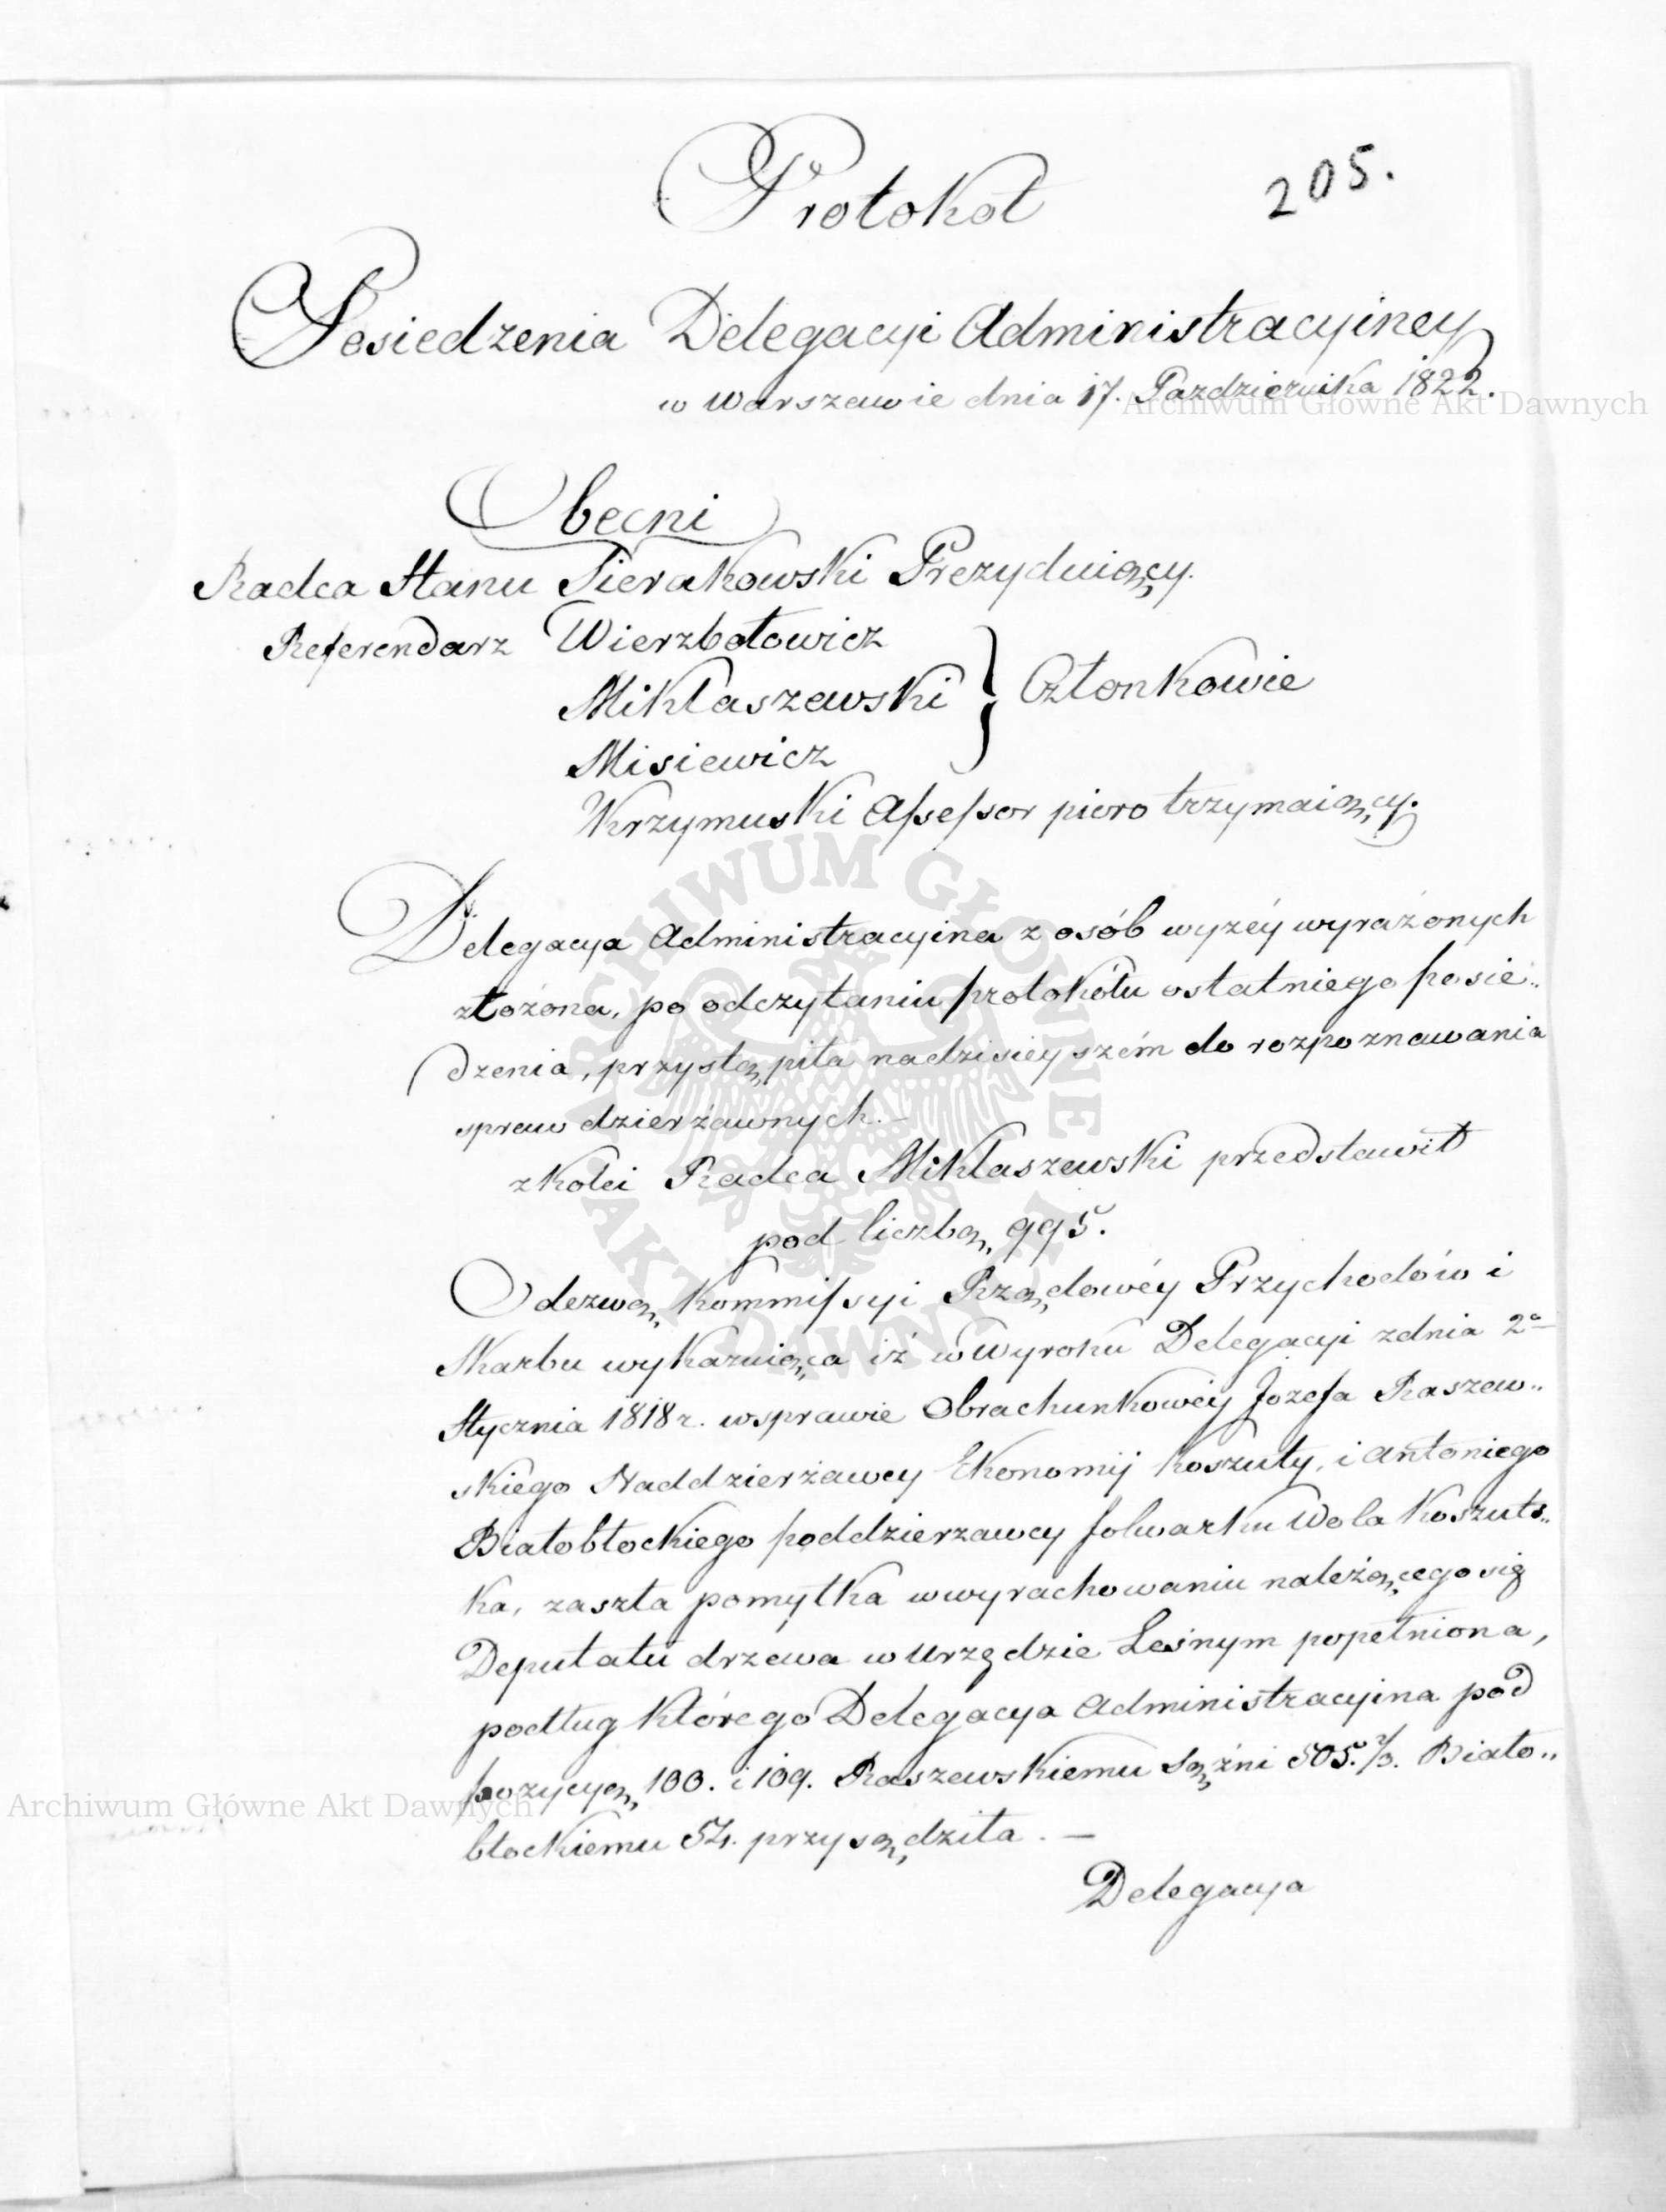 205.
Protokoł
Posiedzenia Delegacyi Administracyiney
w Warszawie dnia 17. Pazdziernika 1822.
Archiwum Główne Akt Dawnych
Obecni
Radca Stanu Sierakowski Prezyduiący.
Referendarz Wierzbołowicz
Mikłaszewski } Członkowie
Misiewicz
Krzymuski Assessor pioro trzymaiący.
Delegacya Administracyina z osób wyzéy wyrażonych
złożona, po odczytaniu protokółu ostatniego posie„
dzenia, przystąpiła nadzisieyszém do rozpoznawania
spraw dzierżawnych. —
zkolei Radca Mikłaszewski przedstawił
pod liczbą 995.
Odezwą Kommissyi Rządowéy Przychodów i
Skarbu wykazuiąca iż w Wyroku Delegacyi zdnia 2o
Stycznia 1818 r. wsprawie Obrachunkowéy Józefa Raszew„
skiego Naddzierżawcy Ekonomij Koszuty, i Antoniego
Białobłockiego poddzierzawcy folwarku Wola Koszuts„
ka, zaszła pomyłka wwyrachowaniu należącego się
Deputatu drzéwa w Urzędzie Leśnym popełniona,
podług którego Delegacya Administracyina pod
pozycyą 100. i 109. Raszewskiemu Sążni 505. 2/3. Biało„
błockiemu 54. przysądziła. —
Archiwum Główne Akt Dawnych
Delegacya
ARCHIWUM GŁÓWNE AKT DAWNYCH